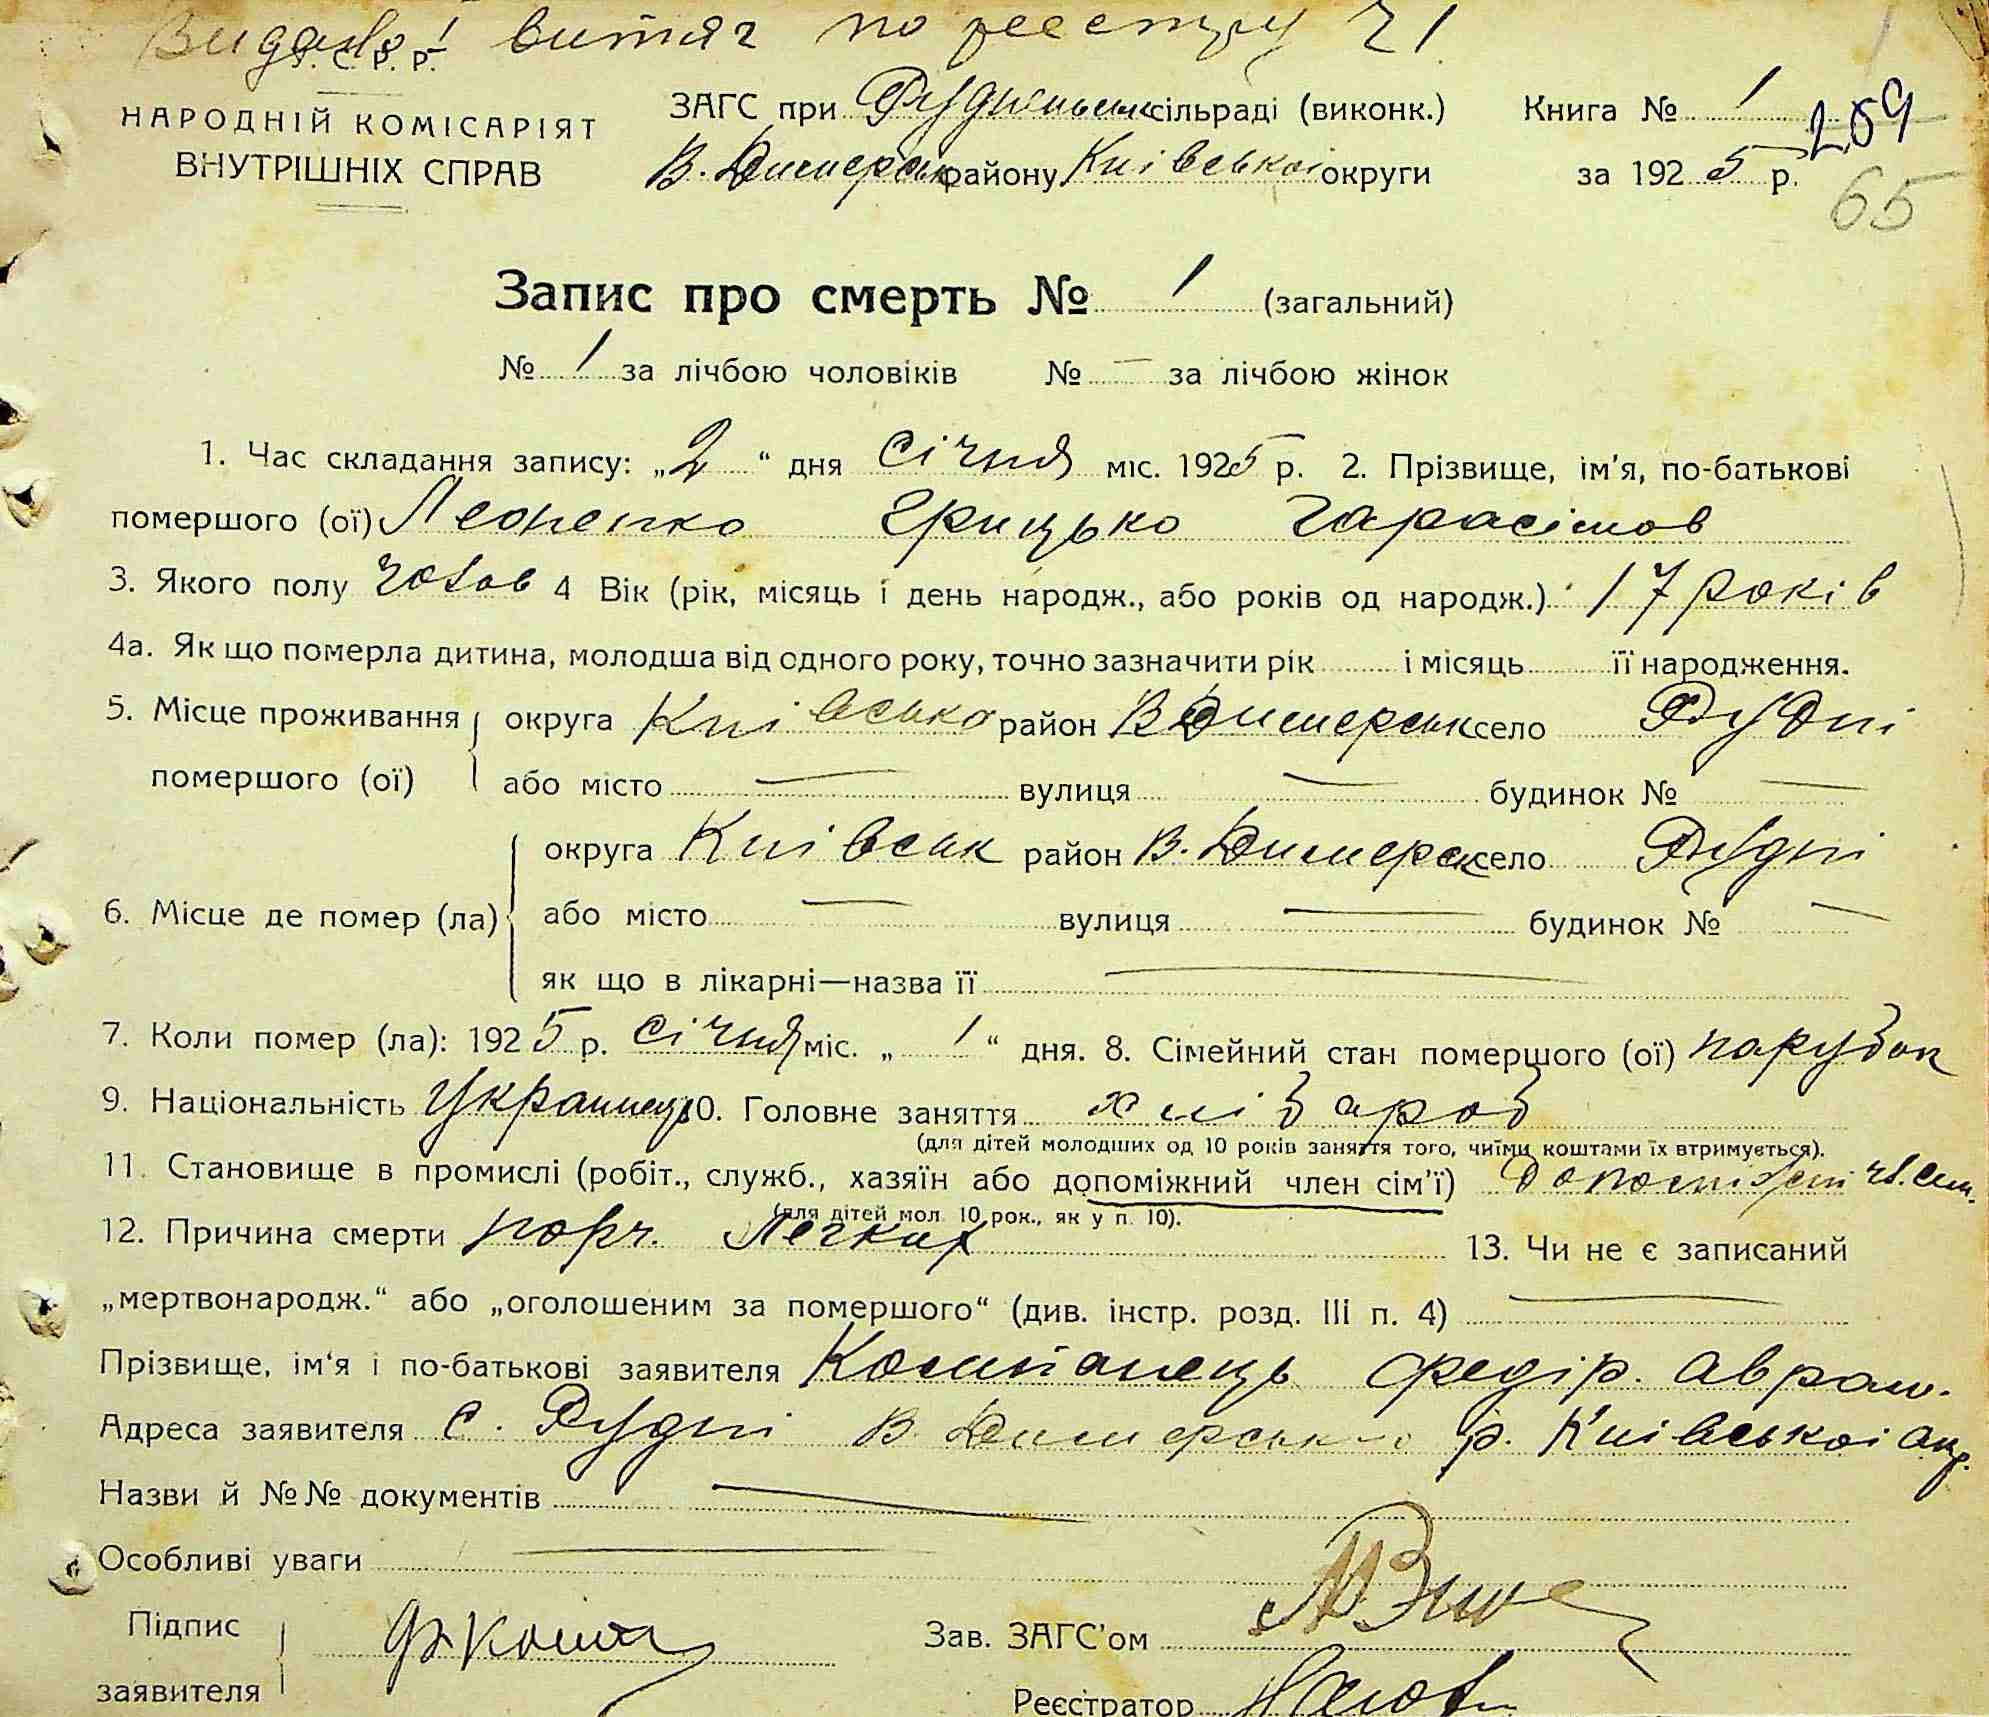 Видано 1 витяг по реєстру Ч 1
У. С. Р. Р.
НАРОДНІЙ КОМІСАРІЯТ
ВНУТРІШНІХ СПРАВ
ЗАГС при Рудненьськ сільраді (виконк.)
В. Димерськ району Київської округи
Книга № 1
за 1925 р.
269
65
Запис про смерть № 1 (загальний)
№ 1 за лічбою чоловіків № — за лічбою жінок
1. Час складання запису: „2“ дня січня міс. 1925 р. 2. Прізвище, ім'я, по-батькові
помершого (ої) Леоненко Грицько Гарасімов
3. Якого полу чолов 4 Вік (рік, місяць і день народж., або років од народж.) 17 років
4а. Як що померла дитина, молодша від одного року, точно зазначити рік і місяць її народження.
5. Місце проживання помершого (ої) округа Київсько район В Димерськ село Рудні
або місто — вулиця — будинок № —
6. Місце де помер (ла) округа Київськ район В. Димерськ село Рудні
або місто — вулиця — будинок № —
як що в лікарні—назва її —
7. Коли помер (ла): 1925 р. січня міс. „1“ дня. 8. Сімейний стан помершого (ої) парубок
9. Національність Українець 10. Головне заняття хлібароб
(для дітей молодших од 10 років заняття того, чиїми коштами їх втримується).
11. Становище в промислі (робіт., служб., хазяїн або допоміжний член сім'ї) допоміжні чл. сім.
(для дітей мол. 10 рок., як у п. 10).
12. Причина смерти порч. Легких 13. Чи не є записаний
„мертвонародж.“ або „оголошеним за помершого“ (див. інстр. розд. III п. 4) —
Прізвище, ім'я і по-батькові заявителя Компанець Федір. Аврам.
Адреса заявителя с. Рудні В. Димерсько р. Київської окр.
Назви й №№ документів —
Особливі уваги —
Підпис заявителя
Зав. ЗАГС'ом
Реєстратор